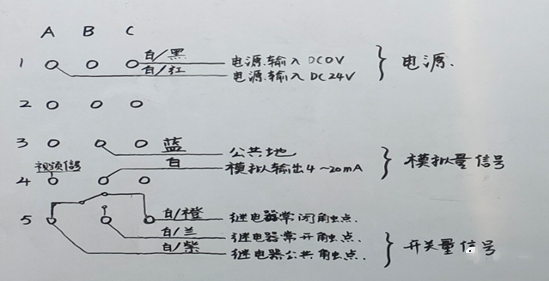 A B C
1 白/黑 电源输入 DC0V
白/红 电源输入 DC24V 电源.
2
3 蓝 公共地
视频信号 白 模拟输出4~20mA 模拟量信号
4
5 白/橙 继电器常闭触点.
白/兰 继电器常开触点.
白/紫 继电器公共触点. 开关量信号